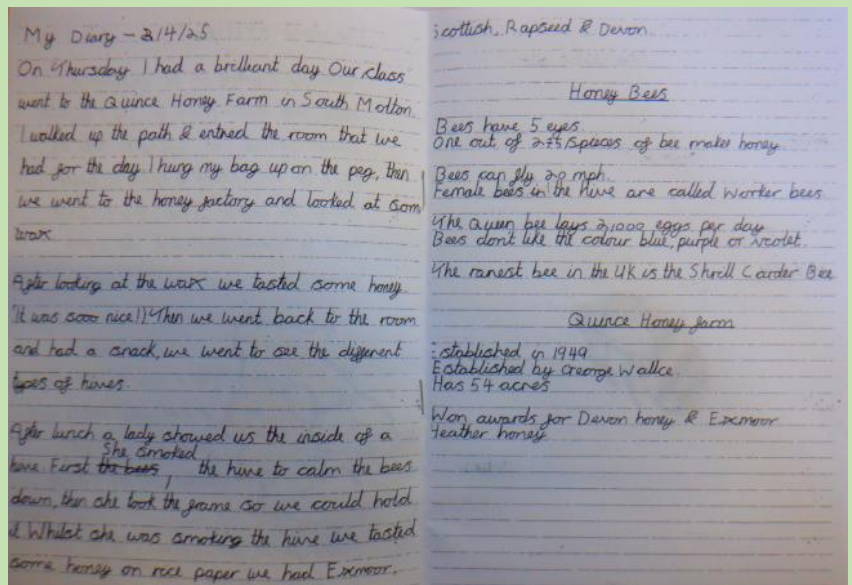 My Diary - 3/4/25
On Thursday I had a brilliant day Our class
went to the Quince Honey Farm in South Molton.
I walked up the path & entred the room that we
had for the day I hung my bag up on the peg, then
we went to the honey factory and looked at som
wax
After looking at the wax we tasted some honey
It was sooo nice!) Then we went back to the room
and had a snack, we went to see the different
types of hives.
After lunch a lady showed us the inside of a
hive. First She smoked the hive to calm the bees
down, then she took the frame so we could hold
it Whilst she was smoking the hive we tasted
some honey on rice paper we had Exmoor,
Scottish, Rapseed & Devon
Honey Bees
Bees have 5 eyes
One out of 275 spieces of bee makes honey
Bees can fly 20 mph.
Female bees in the hive are called worker bees
The Queen bee lays 2,000 eggs per day
Bees dont like the colour blue, purple or violet.
The rarest bee in the UK is the Shrill Carder Bee
Quince Honey farm
Established in 1949
Established by George Wallce.
Has 54 acres
Won awards for Devon honey & Exmoor
Heather honey